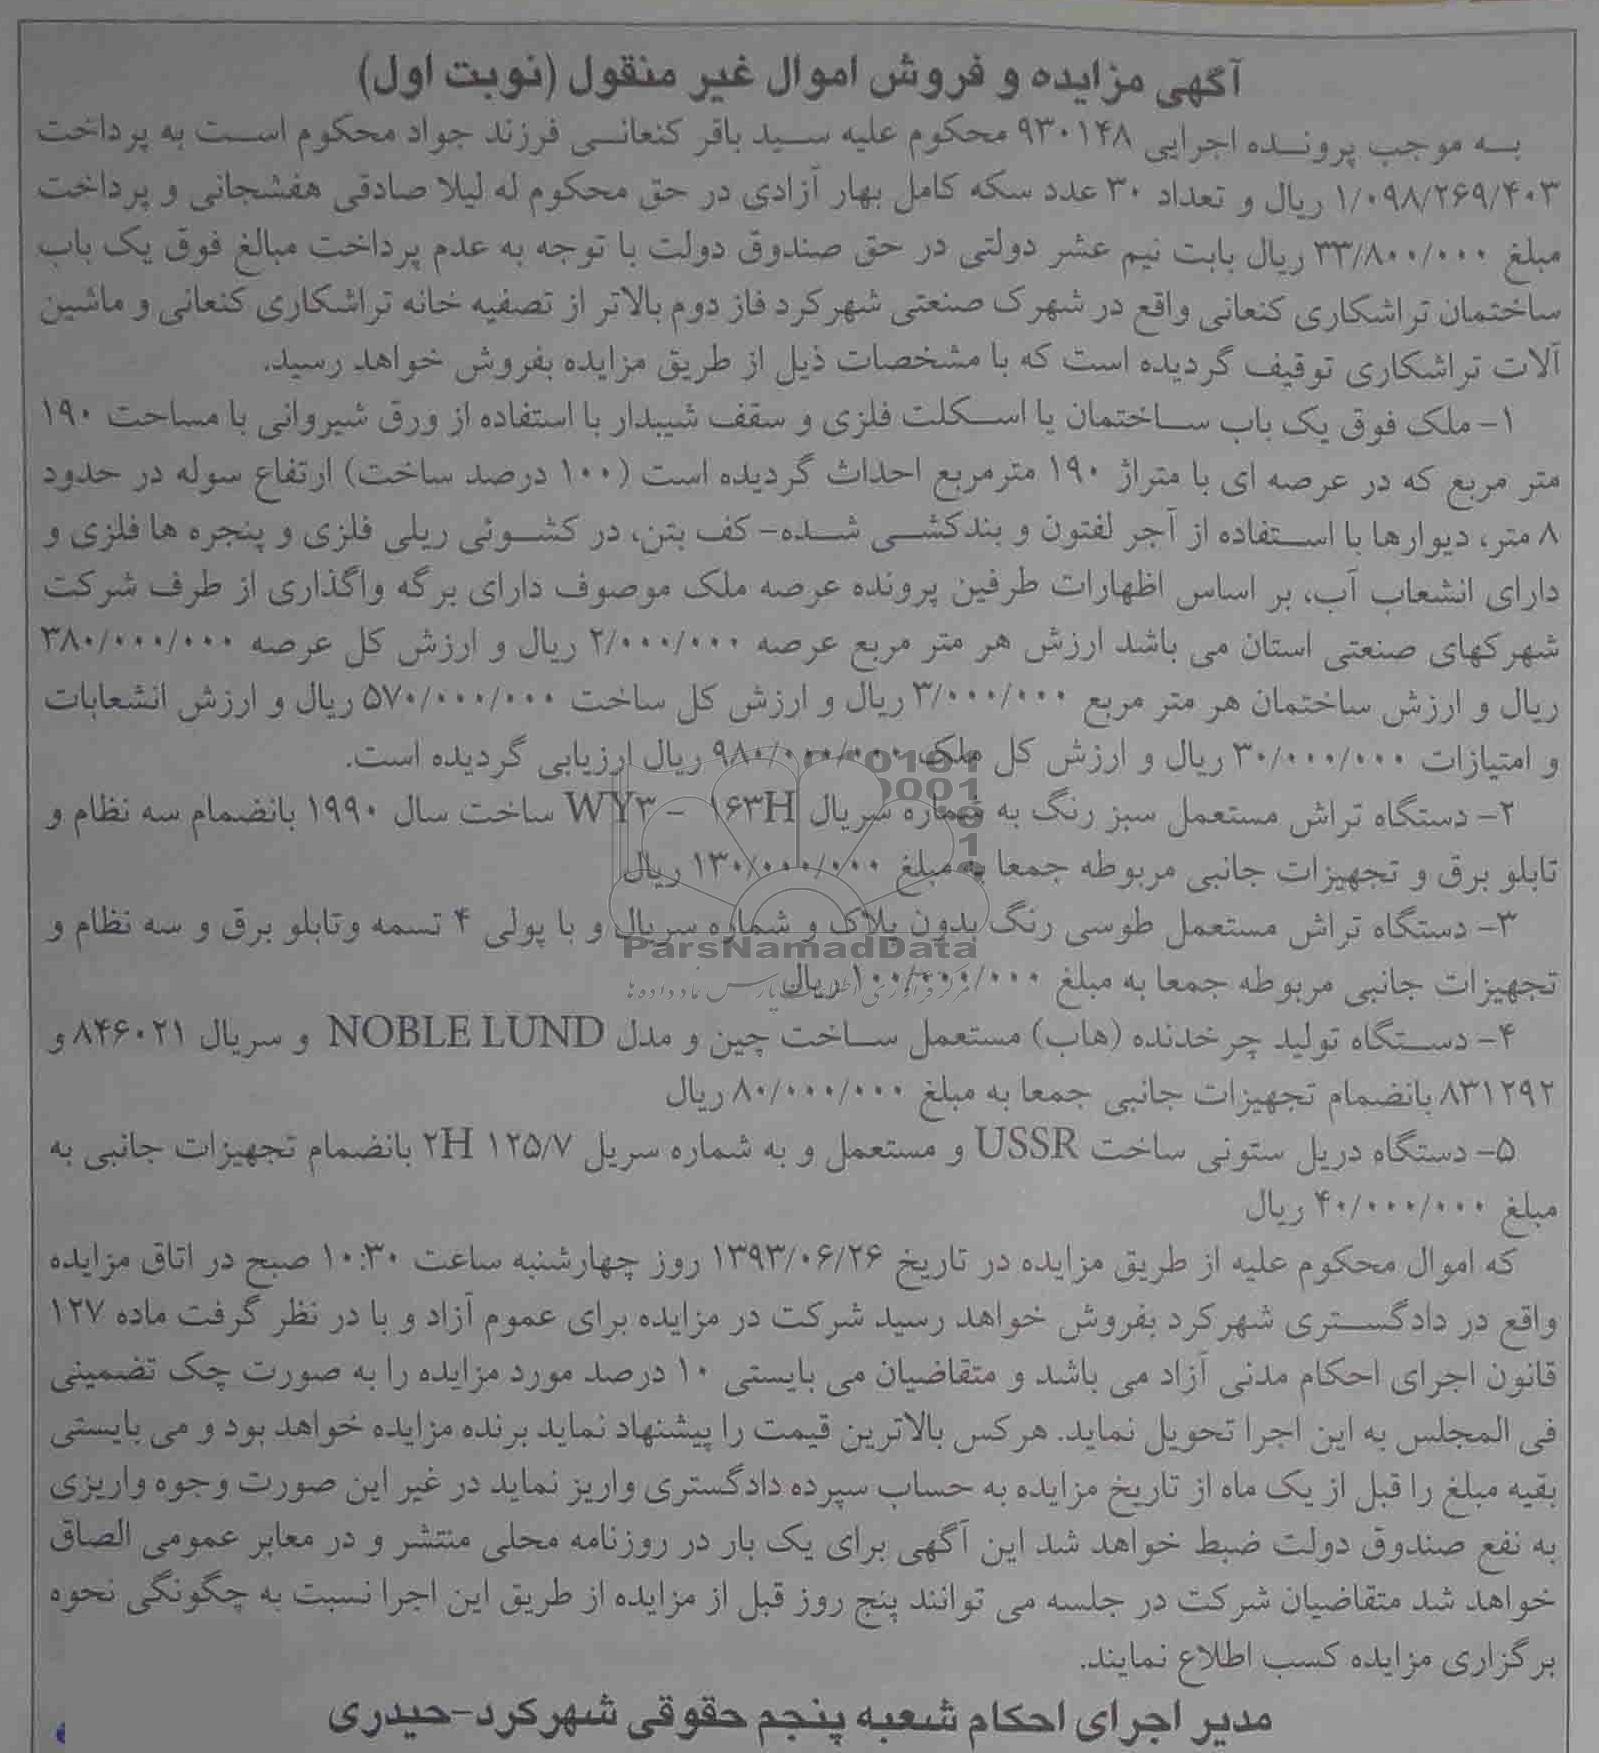 آگهی مزایده و فروش اموال غیر منقول (نوبت اول)
به موجب پرونده اجرایی ۹۳۰۱۴۸ محکوم علیه سید باقر کنعانی فرزند جواد محکوم است به پرداخت
۱/۰۹۸/۲۶۹/۴۰۳ ریال و تعداد ۳۰ عدد سکه کامل بهار آزادی در حق محکوم له لیلا صادقی هفشجانی و پرداخت
مبلغ ۳۳/۸۰۰/۰۰۰ ریال بابت نیم عشر دولتی در حق صندوق دولت با توجه به عدم پرداخت مبالغ فوق یک باب
ساختمان تراشکاری کنعانی واقع در شهرک صنعتی شهرکرد فاز دوم بالاتر از تصفیه خانه تراشکاری کنعانی و ماشین
آلات تراشکاری توقیف گردیده است که با مشخصات ذیل از طریق مزایده بفروش خواهد رسید.
۱- ملک فوق یک باب ساختمان با اسکلت فلزی و سقف شیبدار با استفاده از ورق شیروانی با مساحت ۱۹۰
متر مربع که در عرصه ای با متراژ ۱۹۰ مترمربع احداث گردیده است (۱۰۰ درصد ساخت) ارتفاع سوله در حدود
۸ متر، دیوارها با استفاده از آجر لفتون و بندکشی شده- کف بتن، در کشوئی ریلی فلزی و پنجره ها فلزی و
دارای انشعاب آب، بر اساس اظهارات طرفین پرونده عرصه ملک موصوف دارای برگه واگذاری از طرف شرکت
شهرکهای صنعتی استان می باشد ارزش هر متر مربع عرصه ۲/۰۰۰/۰۰۰ ریال و ارزش کل عرصه ۳۸۰/۰۰۰/۰۰۰
ریال و ارزش ساختمان هر متر مربع ۳/۰۰۰/۰۰۰ ریال و ارزش کل ساخت ۵۷۰/۰۰۰/۰۰۰ ریال و ارزش انشعابات
و امتیازات ۳۰/۰۰۰/۰۰۰ ریال و ارزش کل ملک ۹۸۰/۰۰۰/۰۰۰ ریال ارزیابی گردیده است.
۲- دستگاه تراش مستعمل سبز رنگ به شماره سریال ۱۶۳H - WY۳ ساخت سال ۱۹۹۰ بانضمام سه نظام و
تابلو برق و تجهیزات جانبی مربوطه جمعا به مبلغ ۱۳۰/۰۰۰/۰۰۰ ریال
۳- دستگاه تراش مستعمل طوسی رنگ بدون پلاک و شماره سریال و با پولی ۴ تسمه وتابلو برق و سه نظام و
ParsNamadData
تجهیزات جانبی مربوطه جمعا به مبلغ ۱۰۰/۰۰۰/۰۰۰ ریال
۴- دستگاه تولید چرخدنده (هاب) مستعمل ساخت چین و مدل NOBLE LUND و سریال ۸۴۶۰۲۱ و
۸۳۱۲۹۲ بانضمام تجهیزات جانبی جمعا به مبلغ ۸۰/۰۰۰/۰۰۰ ریال
۵- دستگاه دریل ستونی ساخت USSR و مستعمل و به شماره سریل ۲H ۱۲۵/۷ بانضمام تجهیزات جانبی به
مبلغ ۴۰/۰۰۰/۰۰۰ ریال
که اموال محکوم علیه از طریق مزایده در تاریخ ۱۳۹۳/۰۶/۲۶ روز چهارشنبه ساعت ۱۰:۳۰ صبح در اتاق مزایده
واقع در دادگستری شهرکرد بفروش خواهد رسید شرکت در مزایده برای عموم آزاد و با در نظر گرفت ماده ۱۲۷
قانون اجرای احکام مدنی آزاد می باشد و متقاضیان می بایستی ۱۰ درصد مورد مزایده را به صورت چک تضمینی
فی المجلس به این اجرا تحویل نماید. هرکس بالاترین قیمت را پیشنهاد نماید برنده مزایده خواهد بود و می بایستی
بقیه مبلغ را قبل از یک ماه از تاریخ مزایده به حساب سپرده دادگستری واریز نماید در غیر این صورت وجوه واریزی
به نفع صندوق دولت ضبط خواهد شد این آگهی برای یک بار در روزنامه محلی منتشر و در معابر عمومی الصاق
خواهد شد متقاضیان شرکت در جلسه می توانند پنج روز قبل از مزایده از طریق این اجرا نسبت به چگونگی نحوه
برگزاری مزایده کسب اطلاع نمایند.
مدیر اجرای احکام شعبه پنجم حقوقی شهرکرد-حیدری